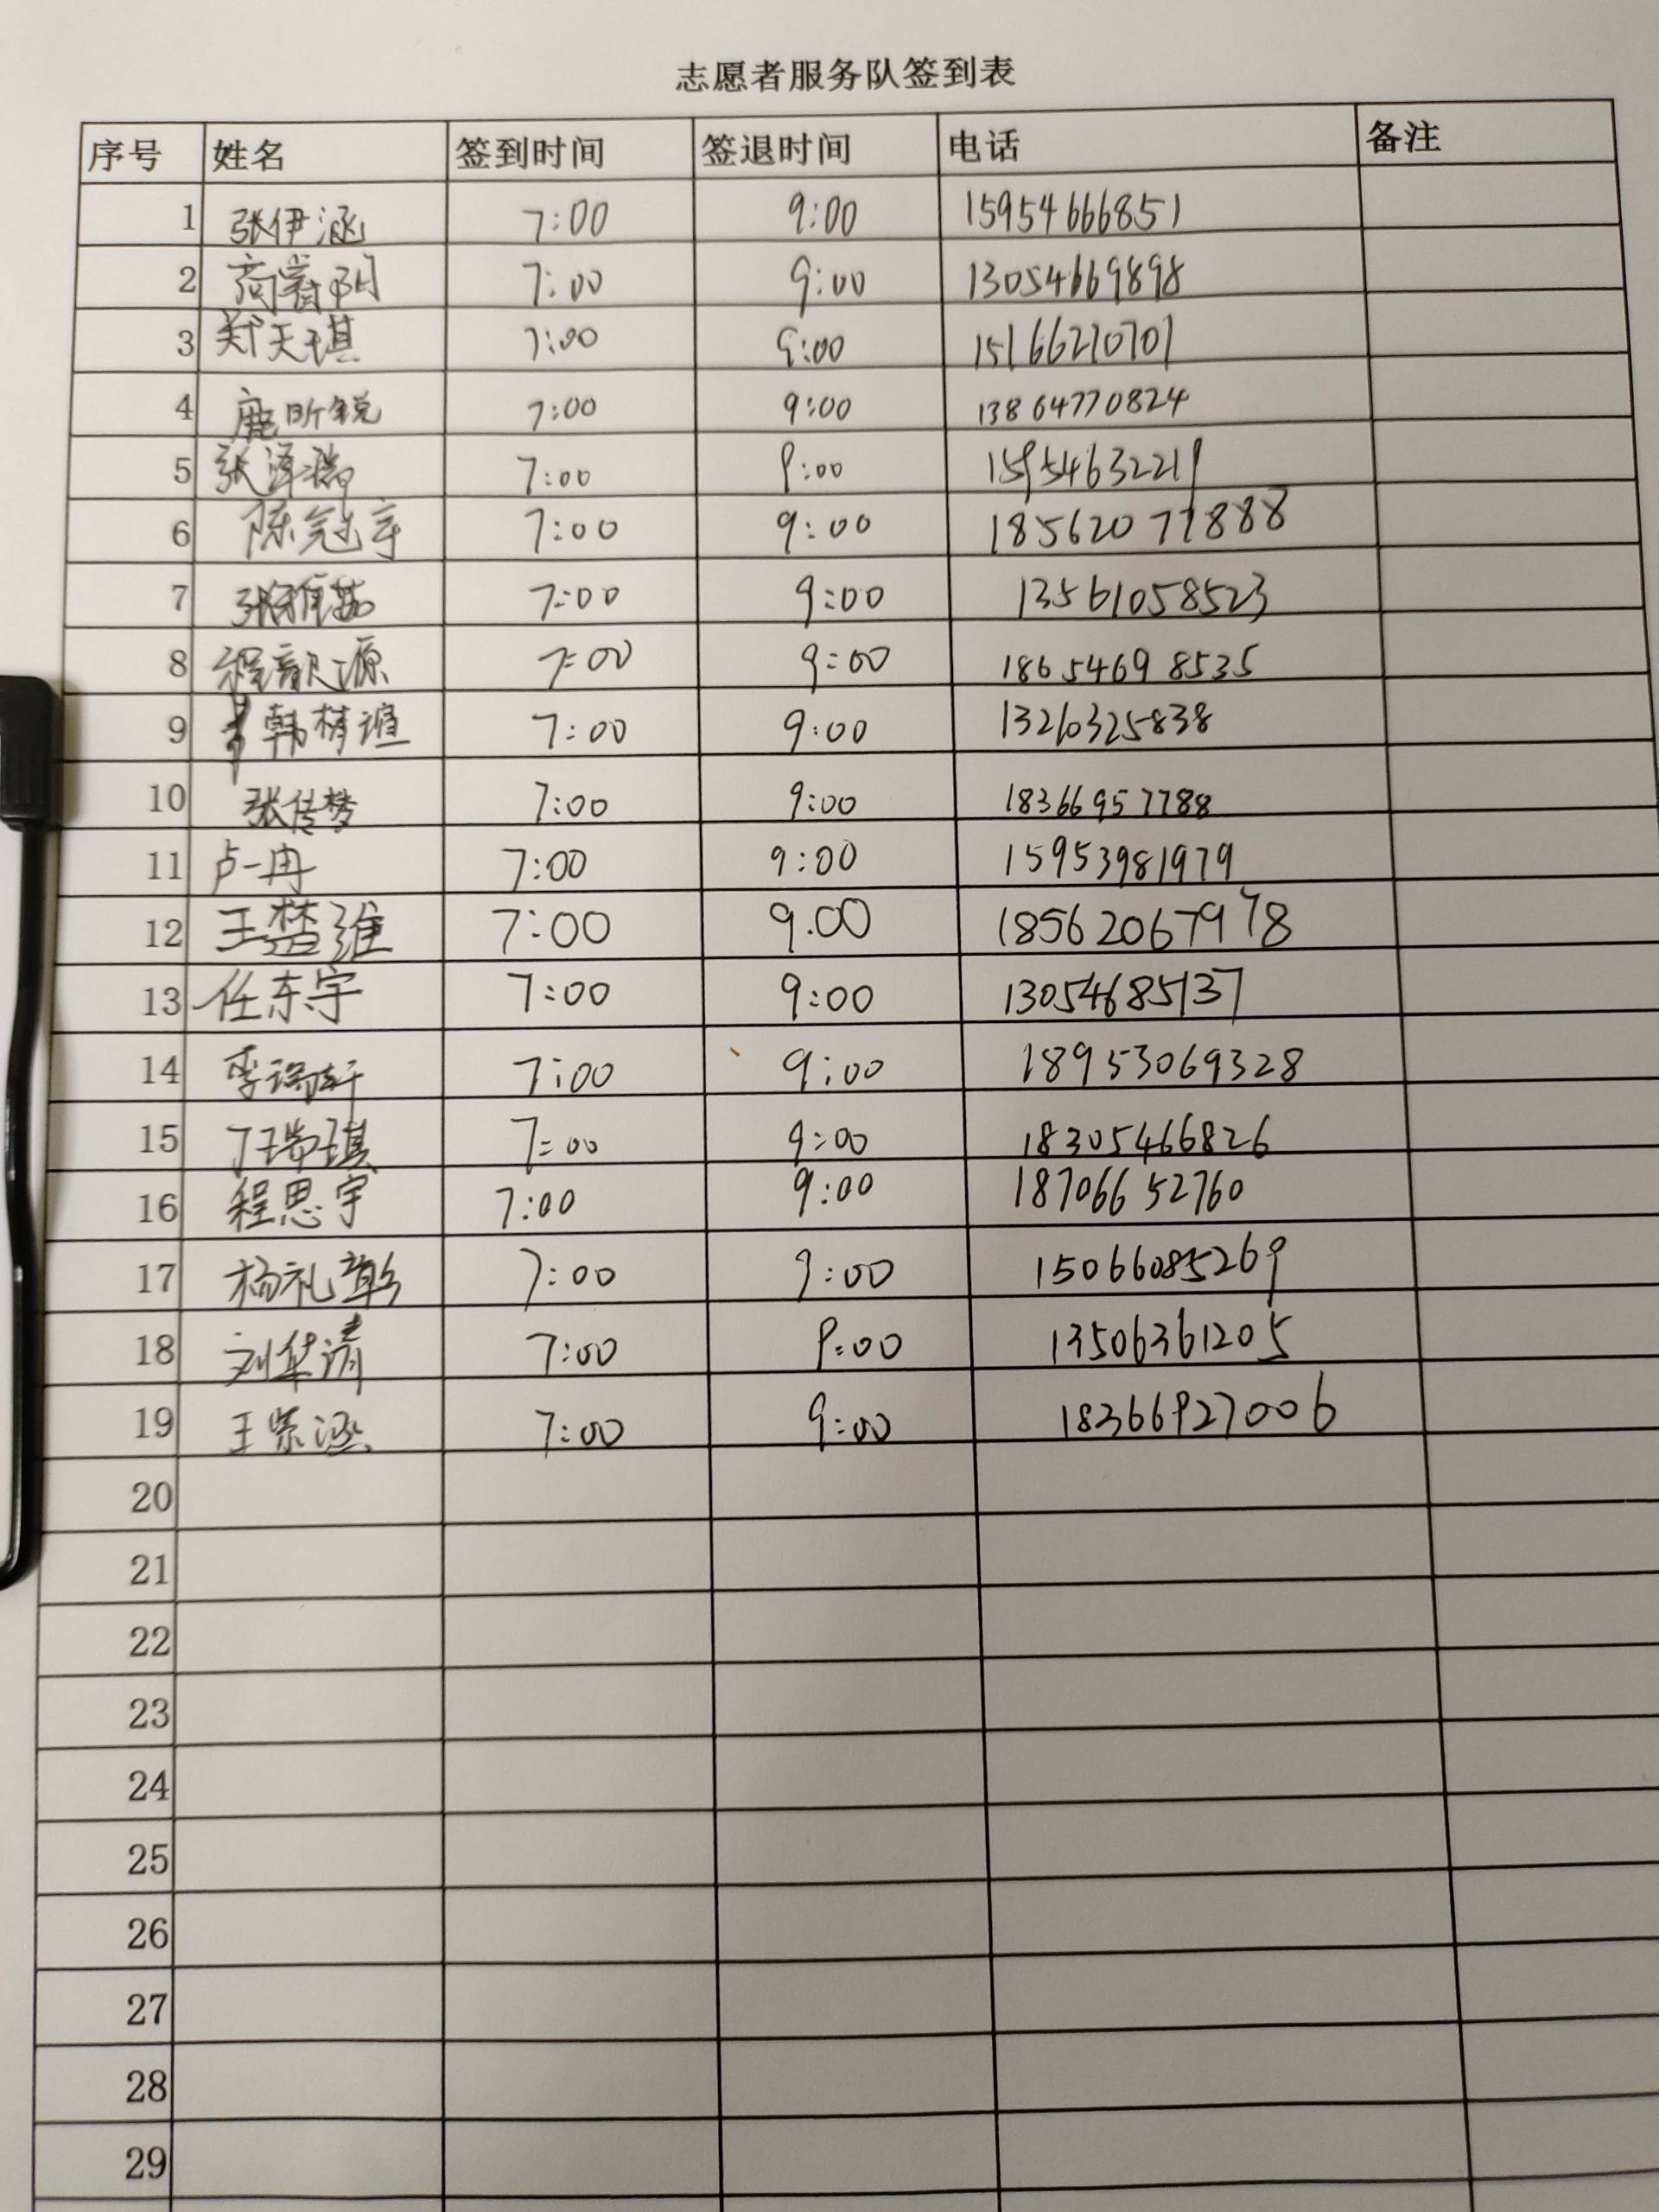 志愿者服务队签到表
序号 姓名 签到时间 签退时间 电话 备注
1 张伊涵 7:00 9:00 15954666851
2 7:00 9:00 13054669898
3 郑天琪 7:00 9:00 15166210701
4 鹿昕锐 7:00 9:00 13864770824
5 张泽瑞 7:00 9:00 15954632219
6 陈冠宇 7:00 9:00 18562077888
7 张雅茹 7:00 9:00 13561058523
8 程歆源 7:00 9:00 18654698535
9 7:00 9:00 13260325838
10 张传梦 7:00 9:00 18366957788
11 卢一冉 7:00 9:00 15953981979
12 王楚淮 7:00 9.00 18562067978
13 任东宇 7:00 9:00 13054685137
14 李瑞轩 7:00 9:00 18953069328
15 丁瑞琪 7:00 9:00 18305466826
16 程思宇 7:00 9:00 18706652760
17 杨礼彰 7:00 9:00 15066085269
18 刘华清 7:00 9:00 13506361205
19 王紫涵 7:00 9:00 18366927006
20
21
22
23
24
25
26
27
28
29